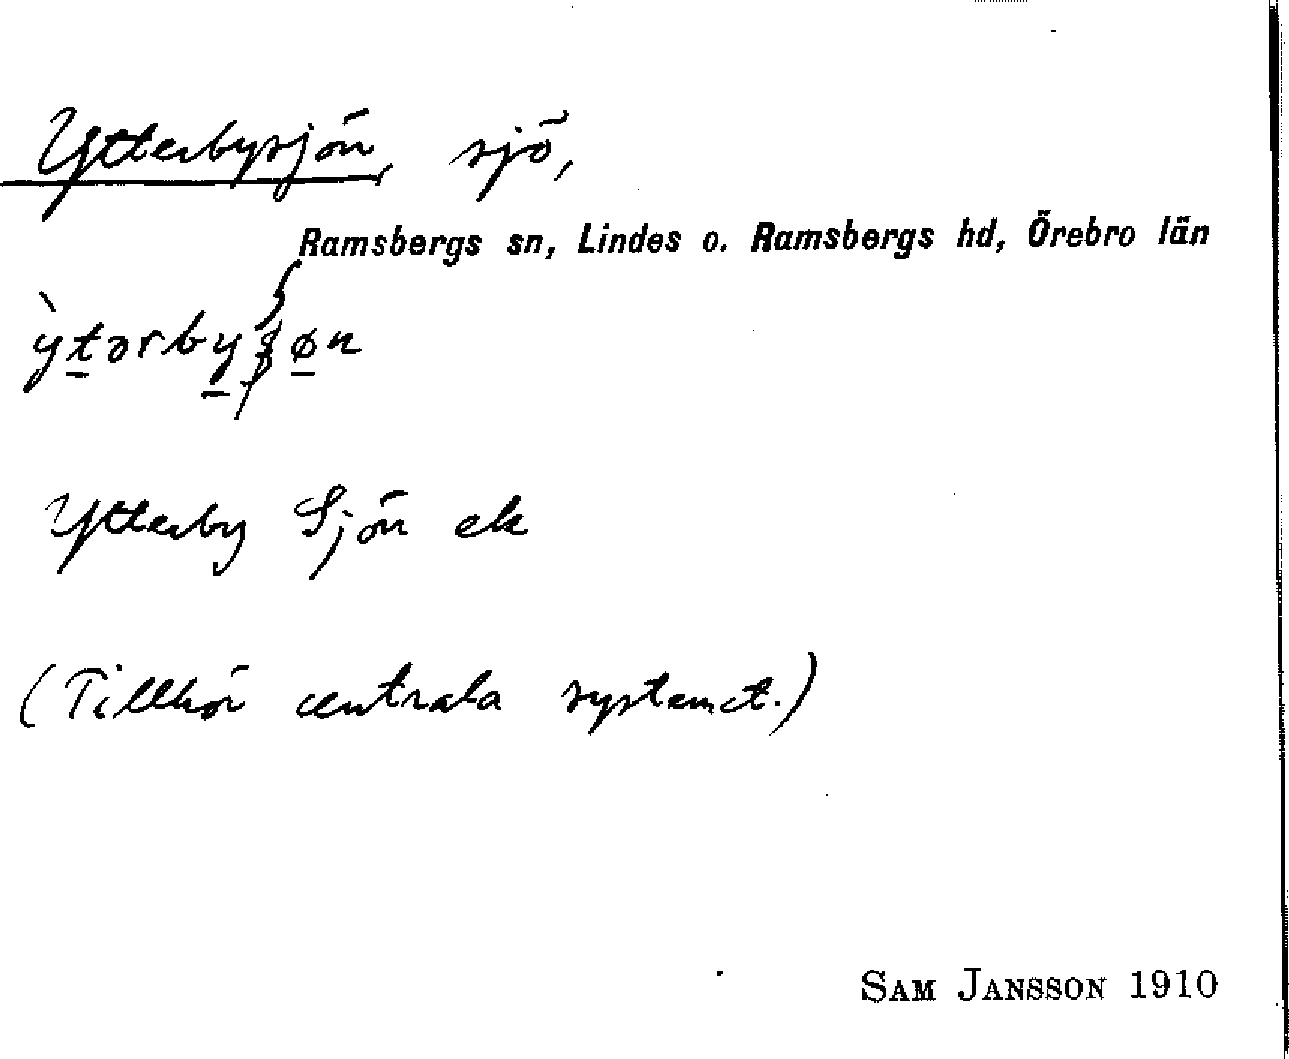 Ytterbysjön, sjö,
Ramsbergs sn, Lindes o. Ramsbergs hd, Örebro län
Ytterby Sjön ek
(Tillhör centrala systemet.)
SAM JANSSON 1910